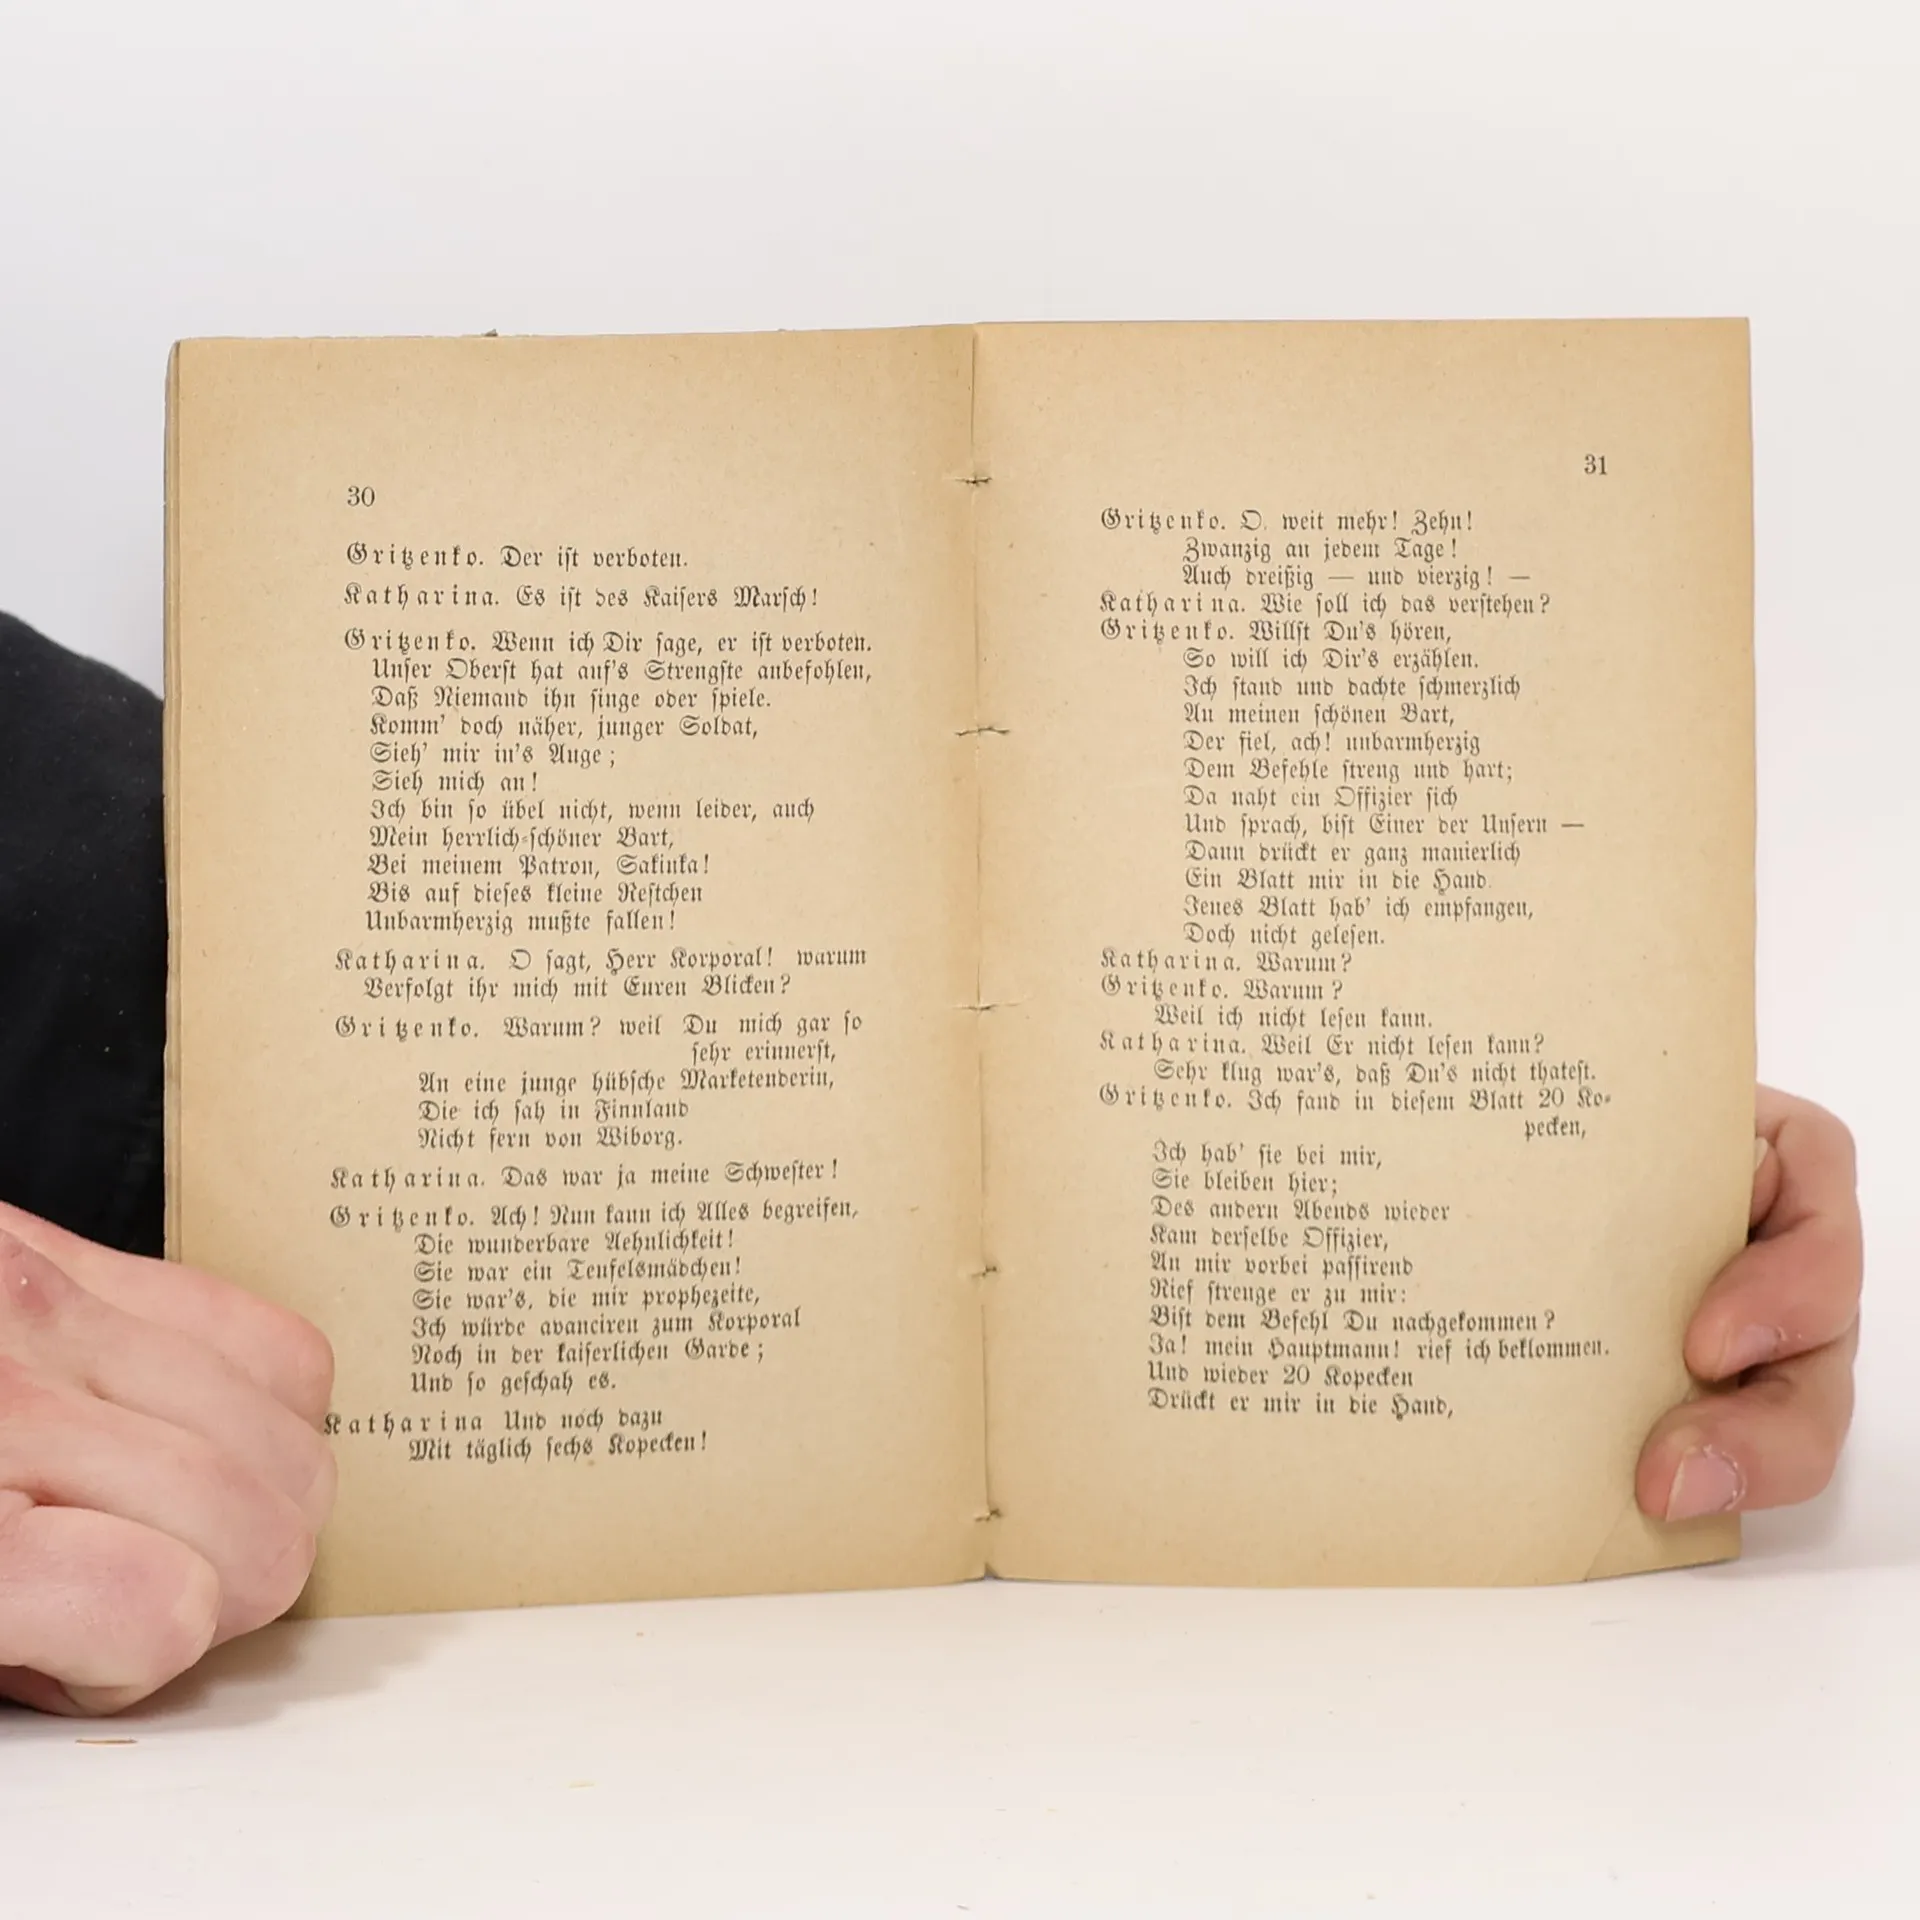 30
Gritzenko. Der ist verboten.
Katharina. Es ist des Kaisers Marsch!
Gritzenko. Wenn ich Dir sage, er ist verboten.
Unser Oberst hat auf's Strengste anbefohlen,
Daß Niemand ihn singe oder spiele.
Komm' doch näher, junger Soldat,
Sieh' mir in's Auge;
Sieh mich an!
Ich bin so übel nicht, wenn leider, auch
Mein herrlich-schöner Bart,
Bei meinem Patron, Sakinka!
Bis auf dieses kleine Restchen
Unbarmherzig mußte fallen!
Katharina. O sagt, Herr Korporal! warum
Verfolgt ihr mich mit Euren Blicken?
Gritzenko. Warum? weil Du mich gar so
sehr erinnerst,
An eine junge hübsche Marketenderin,
Die ich sah in Finnland
Nicht fern von Wiborg.
Katharina. Das war ja meine Schwester!
Gritzenko. Ach! Nun kann ich Alles begreifen,
Die wunderbare Aehnlichkeit!
Sie war ein Teufelsmädchen!
Sie war's, die mir prophezeite,
Ich würde avanciren zum Korporal
Noch in der kaiserlichen Garde;
Und so geschah es.
Katharina Und noch dazu
Mit täglich sechs Kopecken!
31
Gritzenko. O, weit mehr! Zehn!
Zwanzig an jedem Tage!
Auch dreißig — und vierzig! —
Katharina. Wie soll ich das verstehen?
Gritzenko. Willst Du's hören,
So will ich Dir's erzählen.
Ich stand und dachte schmerzlich
An meinen schönen Bart,
Der fiel, ach! unbarmherzig
Dem Befehle streng und hart;
Da naht ein Offizier sich
Und sprach, bist Einer der Unsern —
Dann drückt er ganz manierlich
Ein Blatt mir in die Hand.
Jenes Blatt hab' ich empfangen,
Doch nicht gelesen.
Katharina. Warum?
Gritzenko. Warum?
Weil ich nicht lesen kann.
Katharina. Weil Er nicht lesen kann?
Sehr klug war's, daß Du's nicht thatest.
Gritzenko. Ich fand in diesem Blatt 20 Ko-
pecken,
Ich hab' sie bei mir,
Sie bleiben hier;
Des andern Abends wieder
Kam derselbe Offizier,
An mir vorbei passirend
Rief strenge er zu mir:
Bist dem Befehl Du nachgekommen?
Ja! mein Hauptmann! rief ich beklommen.
Und wieder 20 Kopecken
Drückt er mir in die Hand,